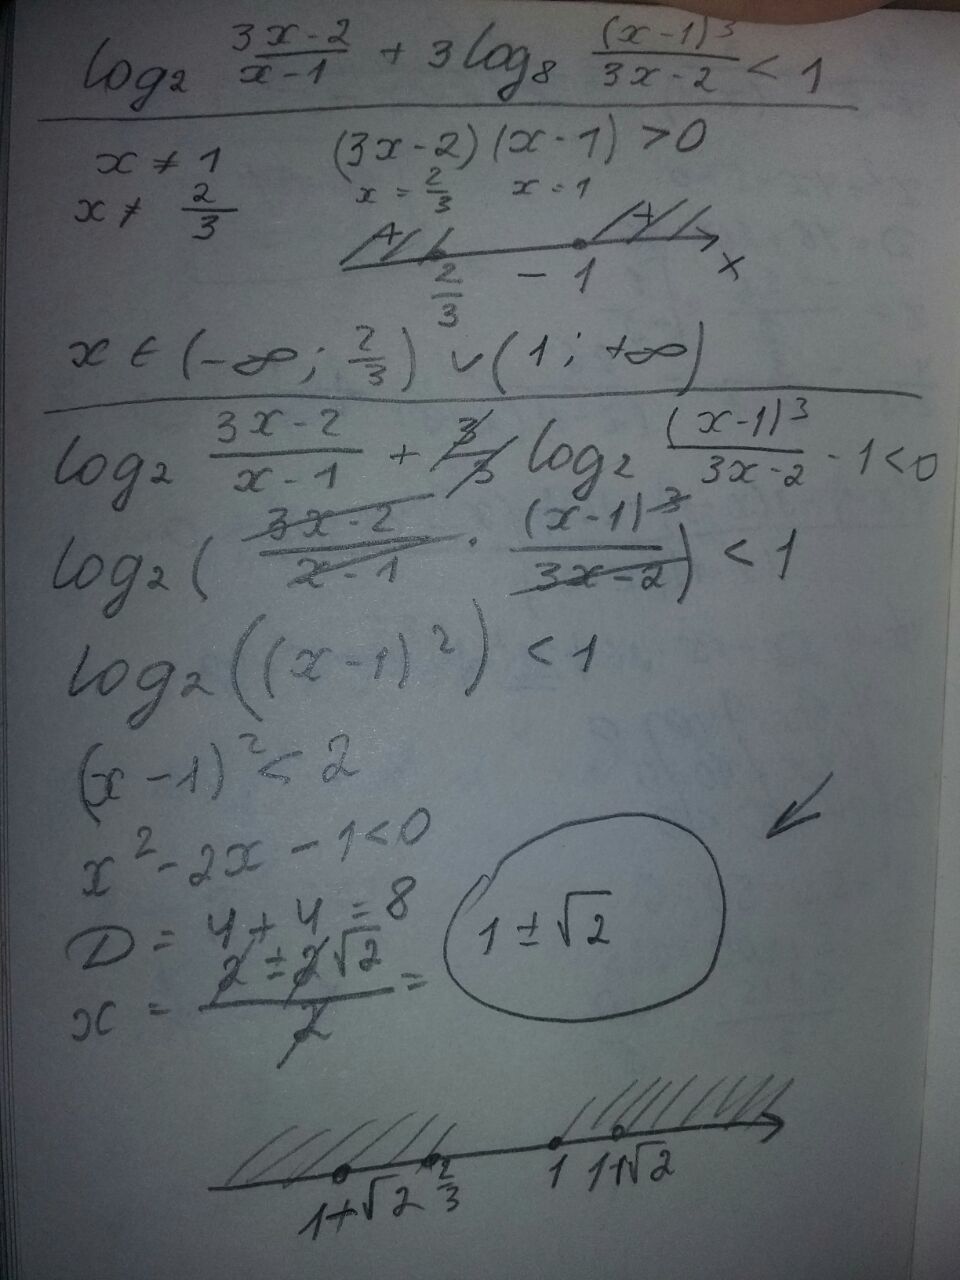 log₂ (3x-2)/(x-1) + 3log₈ (x-1)³/(3x-2) < 1
x ≠ 1 (3x-2)(x-1) > 0
x ≠ 2/3 x = 2/3 x = 1
+ +
2/3 - 1 x
x ∈ (-∞; 2/3) ∪ (1; +∞)
log₂ (3x-2)/(x-1) + 3/3 log₂ (x-1)³/(3x-2) - 1 < 0
log₂ ( (3x-2)/(x-1) · (x-1)³/(3x-2) ) < 1
log₂ ((x-1)²) < 1
(x-1)² < 2
x² - 2x - 1 < 0
D = 4 + 4 = 8
x = (2 ± 2√2)/2 = 1 ± √2
1+√2 2/3 1 1+√2